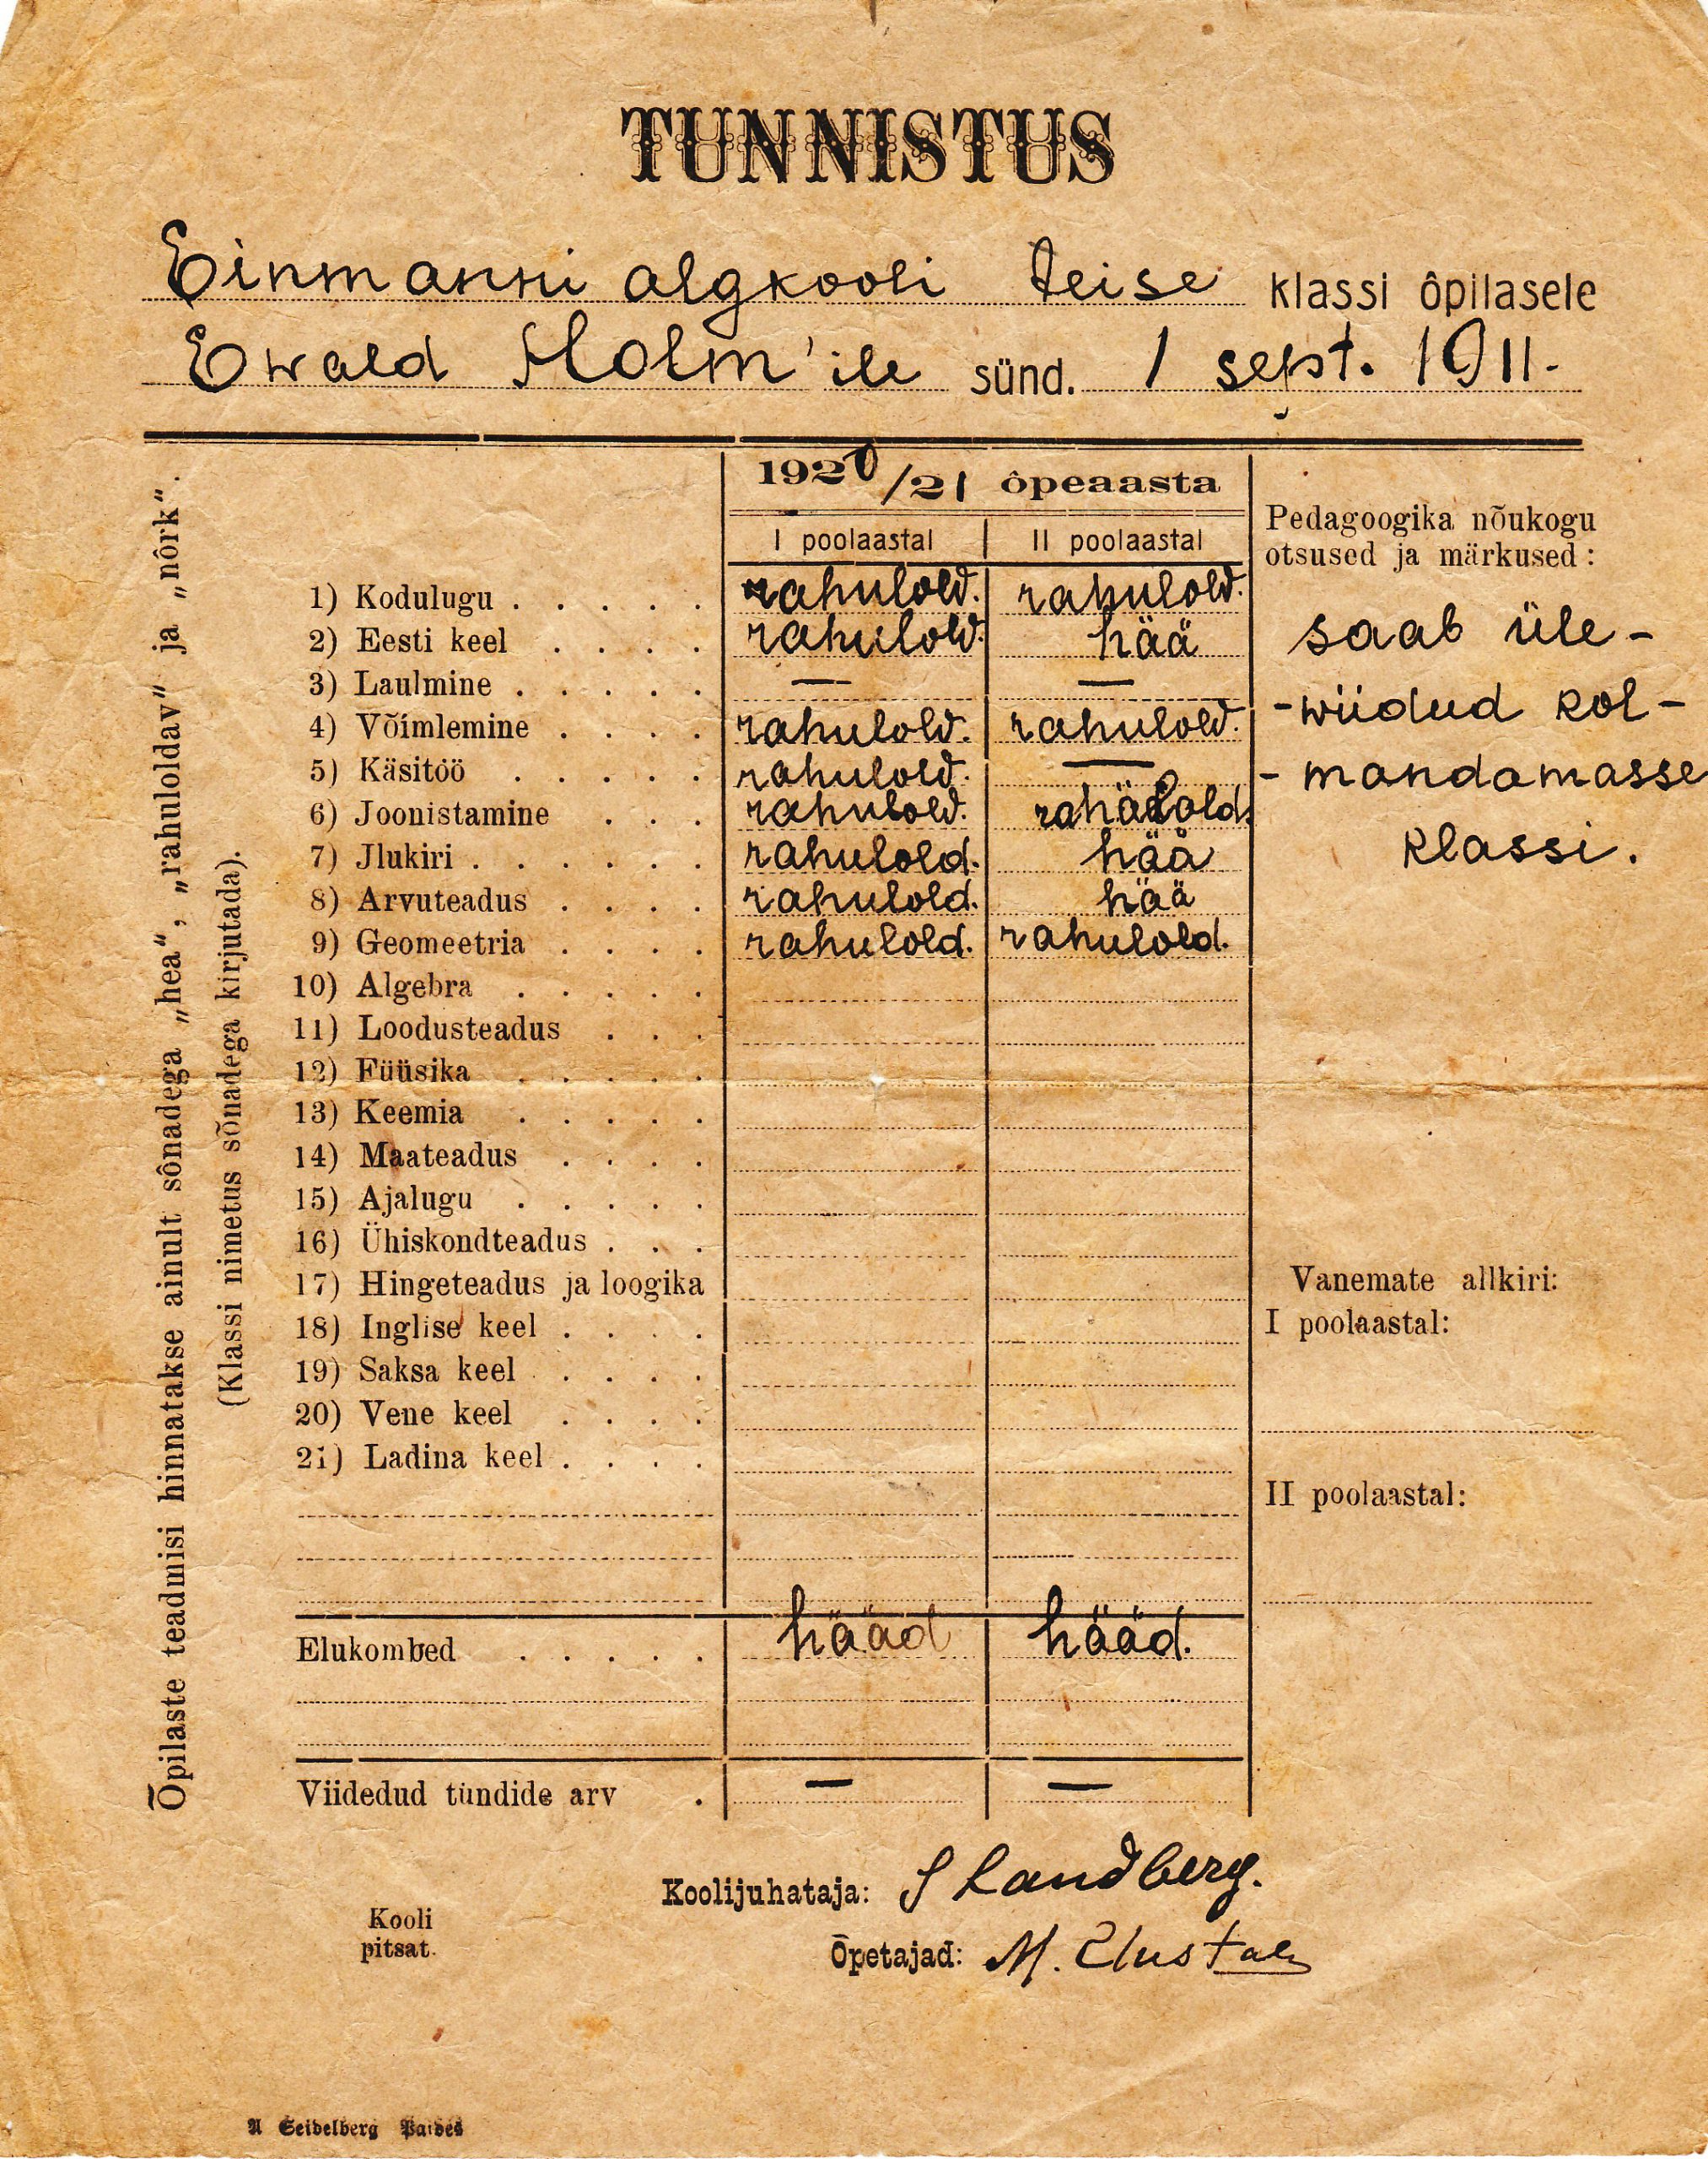 TUNNISTUS
Einmanni algkooli teise klassi ôpilasele
Ewald Holm'ile sünd. 1 sept. 1911.
1920/21 ôpeaasta
I poolaastal II poolaastal
Pedagoogika nõukogu
otsused ja märkused:
saab üle-
-wiidud kol-
- mandamasse
klassi.
1) Kodulugu . . . . . rahulold. rahulold.
2) Eesti keel . . . . rahulold. hää
3) Laulmine . . . . . — —
4) Võimlemine . . . . rahulold. rahulold.
5) Käsitöö . . . . . rahulold. —
6) Joonistamine . . . rahulold. rahulold.
7) Jlukiri . . . . . . rahulold. hää
8) Arvuteadus . . . . rahulold. hää
9) Geomeetria . . . . rahulold. rahulold.
10) Algebra . . . . .
11) Loodusteadus . . .
12) Füüsika . . . . .
13) Keemia . . . . .
14) Maateadus . . . .
15) Ajalugu . . . . .
16) Ühiskondteadus . . .
17) Hingeteadus ja loogika
18) Inglise keel . . . .
19) Saksa keel . . . .
20) Vene keel . . . .
21) Ladina keel . . . .
Vanemate allkiri:
I poolaastal:
II poolaastal:
Elukombed . . . . . hääd hääd.
Viidedud tundide arv . — —
Õpilaste teadmisi hinnatakse ainult sônadega „hea“, „rahuloldav“ ja „nôrk“.
(Klassi nimetus sõnadega kirjutada).
Kooli
pitsat.
Koolijuhataja: J Landberg.
Õpetajad: M.
A Seidelberg Paides